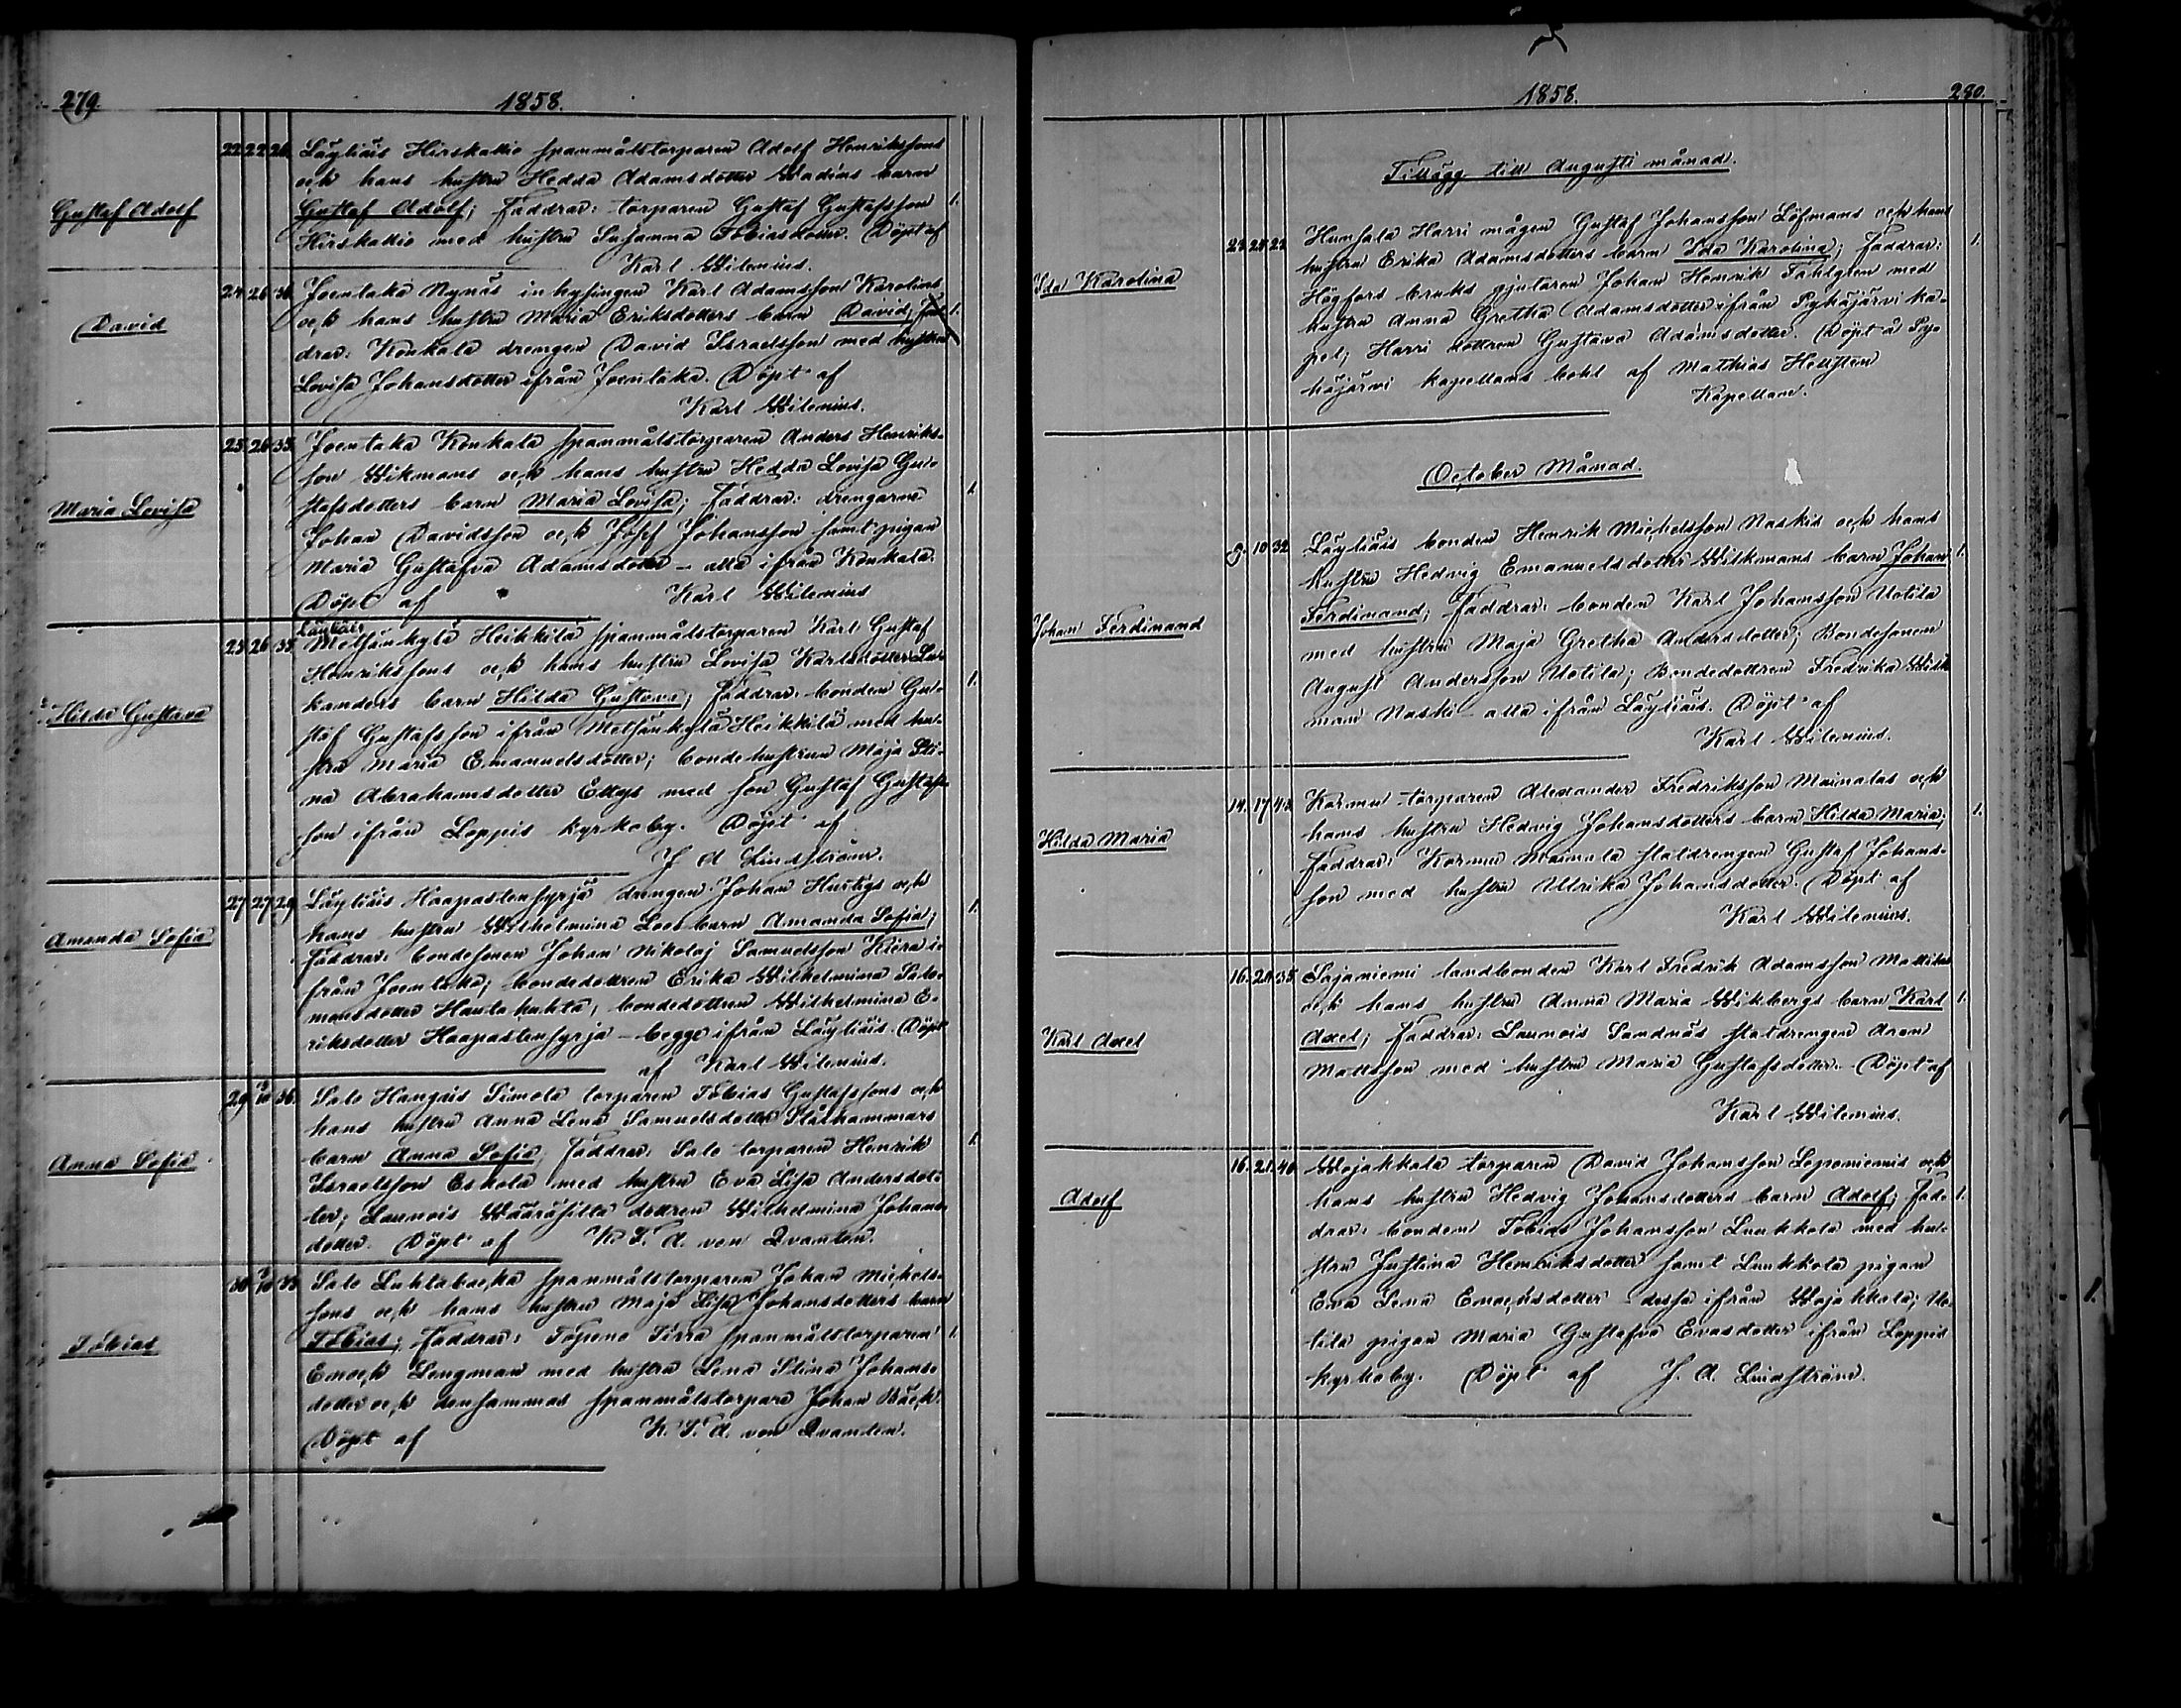 279
1858.
22. 22. 26. Läyliäis Hirskallio spanmålstorparen Adolf Henrikssons
och hans hustru Hedda Adamsdotter Wadéns barn
Gustaf Adolf
Gustaf Adolf; Faddrar: torparen Gustaf Gustafsson 1.
Hirskallio med hustru Susanna Tobiasdotter. Döpt af
Karl Wilenius.
24. 26. 30. Joentaka Nynäs inhysingen Karl Adamsson Karolins
David
och hans hustru Maria Eriksdotters barn David; Fad- 1.
drar: Konkala drengen David Israelsson med hustru
Lovisa Johansdotter ifrån Joentaka. Döpt af
Karl Wilenius.
25. 26. 33. Joentaka Konkala spanmålstorparen Anders Henriks-
son Wikmans och hans hustru Hedda Lovisa Gu-
Maria Lovisa
stafsdotters barn Maria Lovisa; Faddrar: drengarne 1.
Johan Davidsson och Josef Johansson samt pigan
Maria Gustafva Adamsdotter – alla ifrån Konkala.
Döpt af Karl Wilenius
Läyliäis
25. 26. 33. Metsänkylä Heikkilä spanmålstorparen Karl Gustaf
Henrikssons och hans hustru Lovisa Karlsdotter
Hilda Gustava
kanders barn Hilda Gustava; Faddrar: bonden Gu- 1.
staf Gustafsson ifrån Metsänkylä Heikkilä med hu-
stru Maria Emanuelsdotter; bondehustrun Maja Sti-
na Abrahamsdotter med son Gustaf Gustafs-
son ifrån Loppis kyrkoby. Döpt af
J A Lindström.
27. 27. 29. Läyliäis Haapastensyrjä drengen Johan Hurtigs och
Amanda Sofia
hans hustru Wilhelmina Loos barn Amanda Sofia; 1.
Faddrar: bondesonen Johan Nikolaj Samuelsson Kiera i-
från Joentaka; bondedottren Erika Wilhelmina Salo-
monsdotter Hautakuhta; bondedottren Wilhelmina E-
riksdotter Haapastensyrja – begge ifrån Läyliäis. Döpt
af Karl Wilenius.
29. 3/10 36. Salo Hangais Simola torparen Tobias Gustafssons och
hans hustru Anna Lena Samuelsdotter Stålhammars
Anna Sofia
barn Anna Sofia; Faddrar: Salo torparen Henrik 1.
Israelsson Eskola med hustru Eva Lisa Andersdot-
ter; Launois dottren Wilhelmina Johans-
dotter. Döpt af K. T. A. von Qvanten.
30. 3/10 33. Salo Luhtabacka spanmålstorparen Johan Michels-
sons och hans hustru Maja Lisa Johansdotters barn
Tobias
Tobias; Faddrar: Topeno spanmålstorparen 1.
Enoch Lengman med hustru Lena Stina Johans-
dotter och densammas spanmålstorpare Johan Bäck.
Döpt af K. T. A. von Qvanten.
1858.
280.
Tillägg till Augusti månad.
24. 25. 22. Hunsala Harri mågen Gustaf Johansson Löfmans och hans 1.
Ida Karolina
hustru Erika Adamsdotters barn Ida Karolina; Faddrar:
Högfors bruks gjutaren Johan Henrik Tahlgren med
hustru Anna Gretha Adamsdotter ifrån Pyhäjärvi ka-
pel; Harri dottren Gustava Adamsdotter. Döpt å Py-
häjärvi kapellans bohl af Mathias Hellsten
Kapellan.
October Månad.
9. 10. 32. Läyliäis bonden Henrik Michelsson Naskis och hans
hustru Hedvig Emanuelsdotter Wilkmans barn Johan 1.
Johan Ferdinand
Ferdinand; Faddrar: bonden Karl Johansson Uotila
med hustru Maja Gretha Andersdotter; Bondesonen
August Andersson Uotila; Bondedottren Fredrika Wilk-
man Naski – alla ifrån Läyliäis. Döpt af
Karl Wilenius.
14. 17. 43. Kormu torparen Alexander Fredriksson Mainalas och
Hilda Maria
hans hustru Hedvig Johansdotters barn Hilda Maria; 1.
Faddrar: Kormu Mainala statdrengen Gustaf Johans-
son med hustru Ulrika Johansdotter. Döpt af
Karl Wilenius.
16. 20. 35. Sajaniemi landbonden Karl Fredrik Adamsson Mattilas
och hans hustru Anna Maria Wikbergs barn Karl 1.
Karl Axel
Axel; Faddrar: Launois Sandnäs statdrengen Aron
Mattsson med hustru Maria Gustafsdotter. Döpt af
Karl Wilenius.
16. 21. 40. Wojakkala torparen David Johansson Leponiemis och
Adolf
hans hustru Hedvig Johansdotters barn Adolf; Fad- 1.
drar: bonden Tobias Johansson Luukkola med hu-
stru Justina Henriksdotter samt Luukkola pigan
Eva Lena Enochsdotter – dessa ifrån Wojakkala; Uo-
tila pigan Maria Gustafva Evasdotter ifrån Loppis
kyrkoby. Döpt af J. A. Lindström.
1.